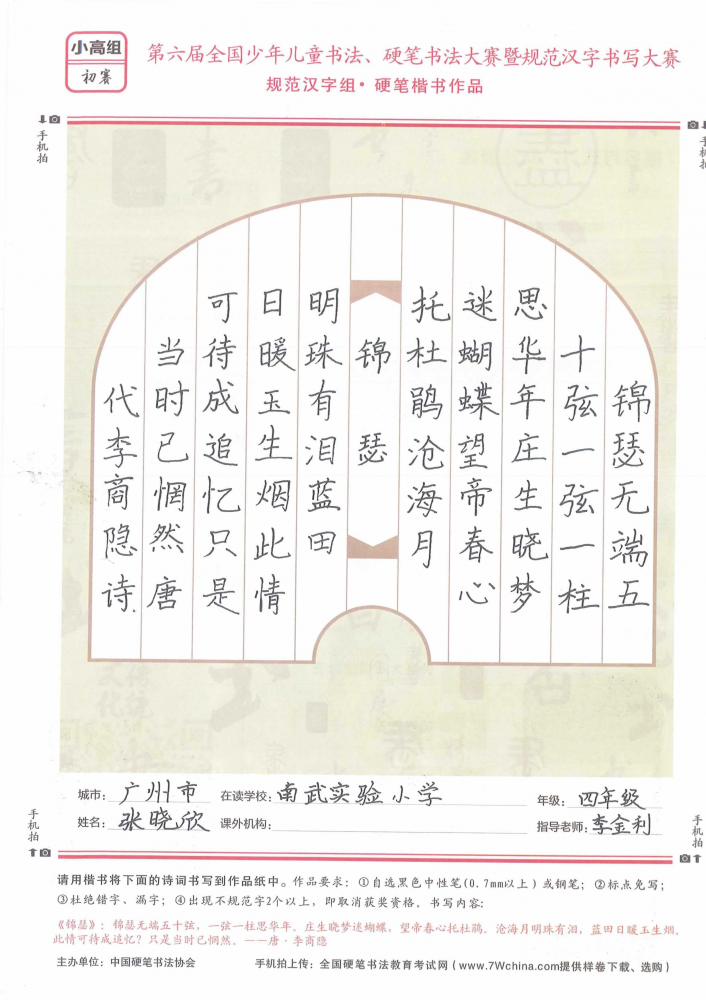 小高组
初赛
第六届全国少年儿童书法、硬笔书法大赛暨规范汉字书写大赛
规范汉字组·硬笔楷书作品
手机拍
手机拍
锦瑟无端五
十弦一弦一柱
思华年庄生晓梦
迷蝴蝶望帝春心
托杜鹃沧海月
锦瑟
明珠有泪蓝田
日暖玉生烟此情
可待成追忆只是
当时已惘然唐
代李商隐诗
城市：广州市 在读学校：南武实验小学 年级：四年级
姓名：张晓欣 课外机构： 指导老师：李金利
手机拍
手机拍
请用楷书将下面的诗词书写到作品纸中。作品要求：①自选黑色中性笔(0.7mm以上)或钢笔；②标点免写；
③杜绝错字、漏字；④出现不规范字2个以上，即取消获奖资格。书写内容：
《锦瑟》：锦瑟无端五十弦，一弦一柱思华年。庄生晓梦迷蝴蝶，望帝春心托杜鹃。沧海月明珠有泪，蓝田日暖玉生烟。
此情可待成追忆？只是当时已惘然。——唐·李商隐
主办单位：中国硬笔书法协会 手机拍上传：全国硬笔书法教育考试网(www.7Wchina.com提供样卷下载、选购)